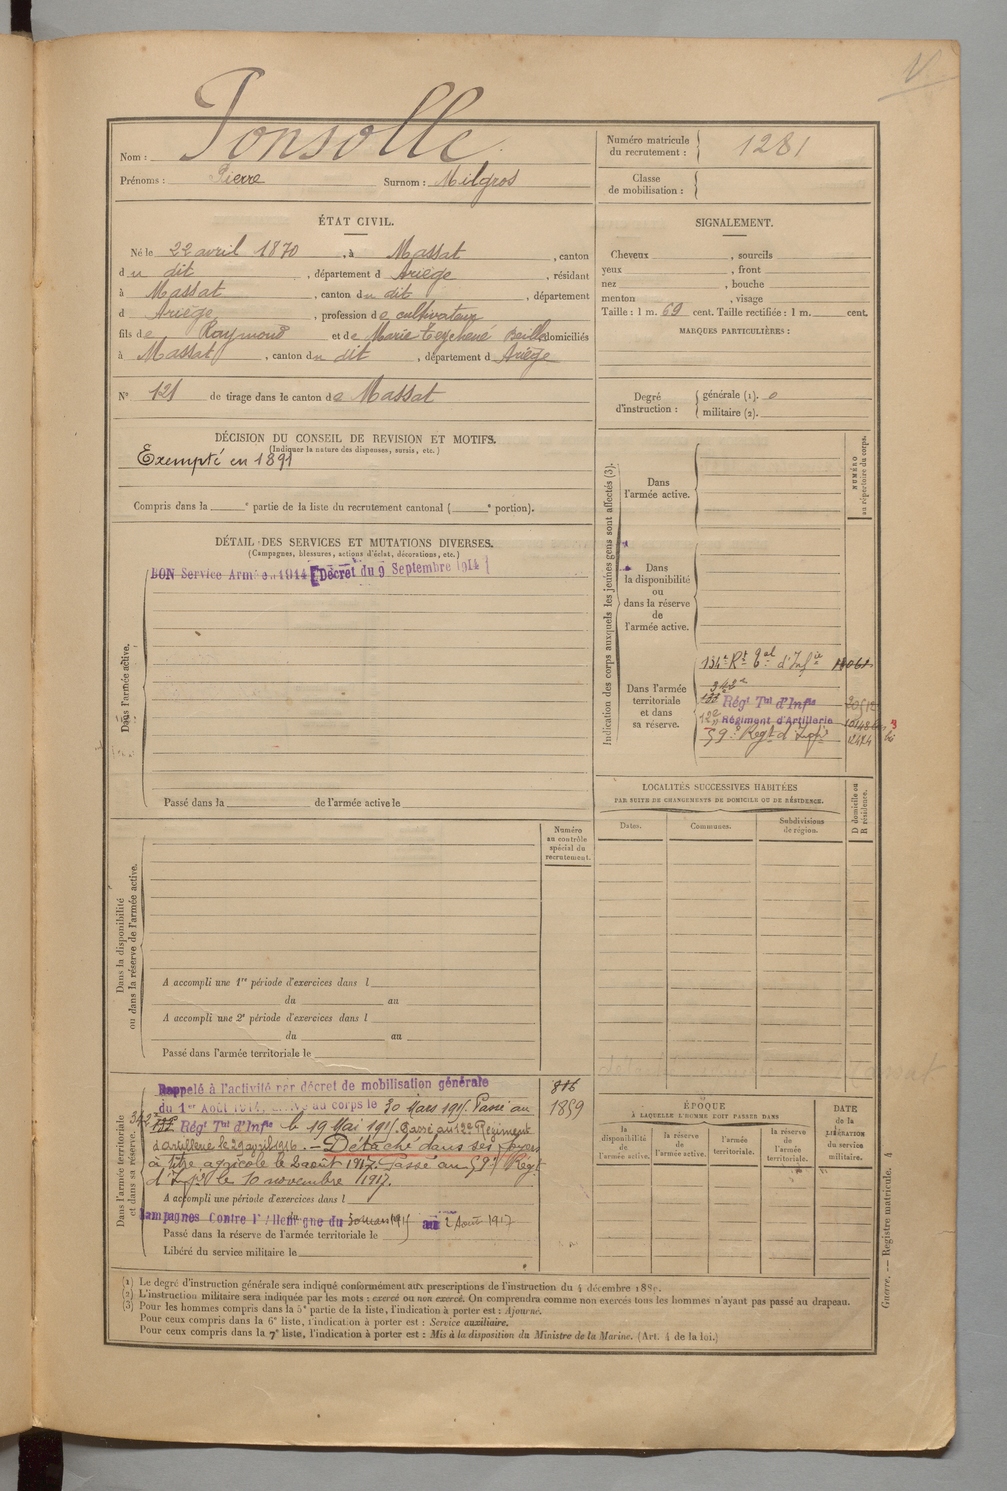 Nom : Ponsolle
Prénoms : Pierre Surnom : Milgros
Numéro matricule du recrutement : 1281
Classe de mobilisation :
ÉTAT CIVIL.
Né le 22 avril 1870, à Massat, canton
du dit, département d Ariège, résidant
à Massat, canton du dit, département
d Ariège, profession de cultivateur
fils de Raymond et de Marie Teychené domiciliés
à Massat, canton du dit, département d Ariège
N° 121 de tirage dans le canton de Massat
SIGNALEMENT.
Cheveux , sourcils
yeux , front
nez , bouche
menton , visage
Taille : 1 m. 69 cent. Taille rectifiée : 1 m. cent.
MARQUES PARTICULIÈRES :
Degré d'instruction : générale (1). 0
militaire (2).
DÉCISION DU CONSEIL DE REVISION ET MOTIFS.
(Indiquer la nature des dispenses, sursis, etc.)
Exempté en 1891
Compris dans la e partie de la liste du recrutement cantonal ( e portion).
DÉTAIL DES SERVICES ET MUTATIONS DIVERSES.
(Campagnes, blessures, actions d'éclat, décorations, etc.)
BON Service Armé en 1914 [Décret du 9 Septembre 1914]
Dans l'armée active.
Passé dans la de l'armée active le
Indication des corps auxquels les jeunes gens sont affectés (3).
NUMÉRO au répertoire du corps.
Dans l'armée active.
Dans la disponibilité ou dans la réserve de l'armée active.
Dans l'armée territoriale et dans sa réserve.
134e Rt tal d'Infie
342e
Régt Tal d'Infie
Régiment d'Artillerie
59e Regt d'Infie
LOCALITÉS SUCCESSIVES HABITÉES
PAR SUITE DE CHANGEMENTS DE DOMICILE OU DE RÉSIDENCE.
Dates. Communes. Subdivisions de région.
D domicile ou R résidence.
Numéro au contrôle spécial du recrutement.
Dans la disponibilité ou dans la réserve de l'armée active.
A accompli une 1re période d'exercices dans l
du au
A accompli une 2e période d'exercices dans l
du au
Passé dans l'armée territoriale le
Dans l'armée territoriale et dans sa réserve.
Rappelé à l'activité par décret de mobilisation générale
du 1er AOUT 1914, arrivé au corps le 30 Mars 1915. Passé au
342e Régt Tal d'Infie le 19 Mai 1915. Passé au 122e Régiment
d'artillerie le 29 avril 1916. — Détaché dans ses foyers
à titre agricole le 2 août 1917. Passé au 59e Regt
d'Infie le 10 novembre 1917.
A accompli une période d'exercices dans l
Campagnes Contre l'Allemagne du 30 mars 1915 au 2 Août 1917
Passé dans la réserve de l'armée territoriale le
Libéré du service militaire le
1859
ÉPOQUE
À LAQUELLE L'HOMME DOIT PASSER DANS
la disponibilité de l'armée active.
la réserve de l'armée active.
l'armée territoriale.
la réserve de l'armée territoriale.
DATE de la LIBÉRATION du service militaire.
Guerre. — Registre matricule. 4
(1) Le degré d'instruction générale sera indiqué conformément aux prescriptions de l'instruction du 4 décembre 1889.
(2) L'instruction militaire sera indiquée par les mots : exercé ou non exercé. On comprendra comme non exercés tous les hommes n'ayant pas passé au drapeau.
(3) Pour les hommes compris dans la 5e partie de la liste, l'indication à porter est : Ajourné.
Pour ceux compris dans la 6e liste, l'indication à porter est : Service auxiliaire.
Pour ceux compris dans la 7e liste, l'indication à porter est : Mis à la disposition du Ministre de la Marine. (Art. 4 de la loi.)